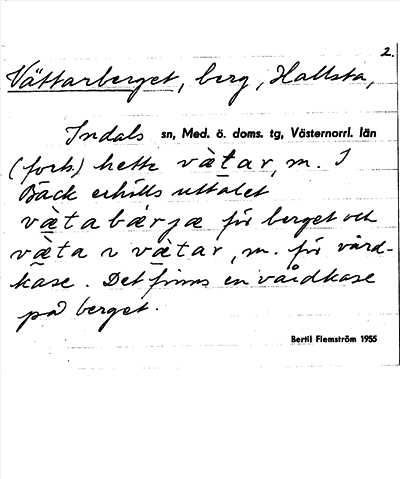 2.
Vättarberget, berg, Hallsta,
Indals sn, Med. ö. doms. tg, Västernorrl. län
(forts.) hette vä̀tar, m. I
Bäck erhölls uttalet
vä̀tabärjæ för berget och
vä̀ta ~ vä̀tar, m. för vård-
kase. Det finns en vårdkase
på berget.
Bertil Flemström 1955